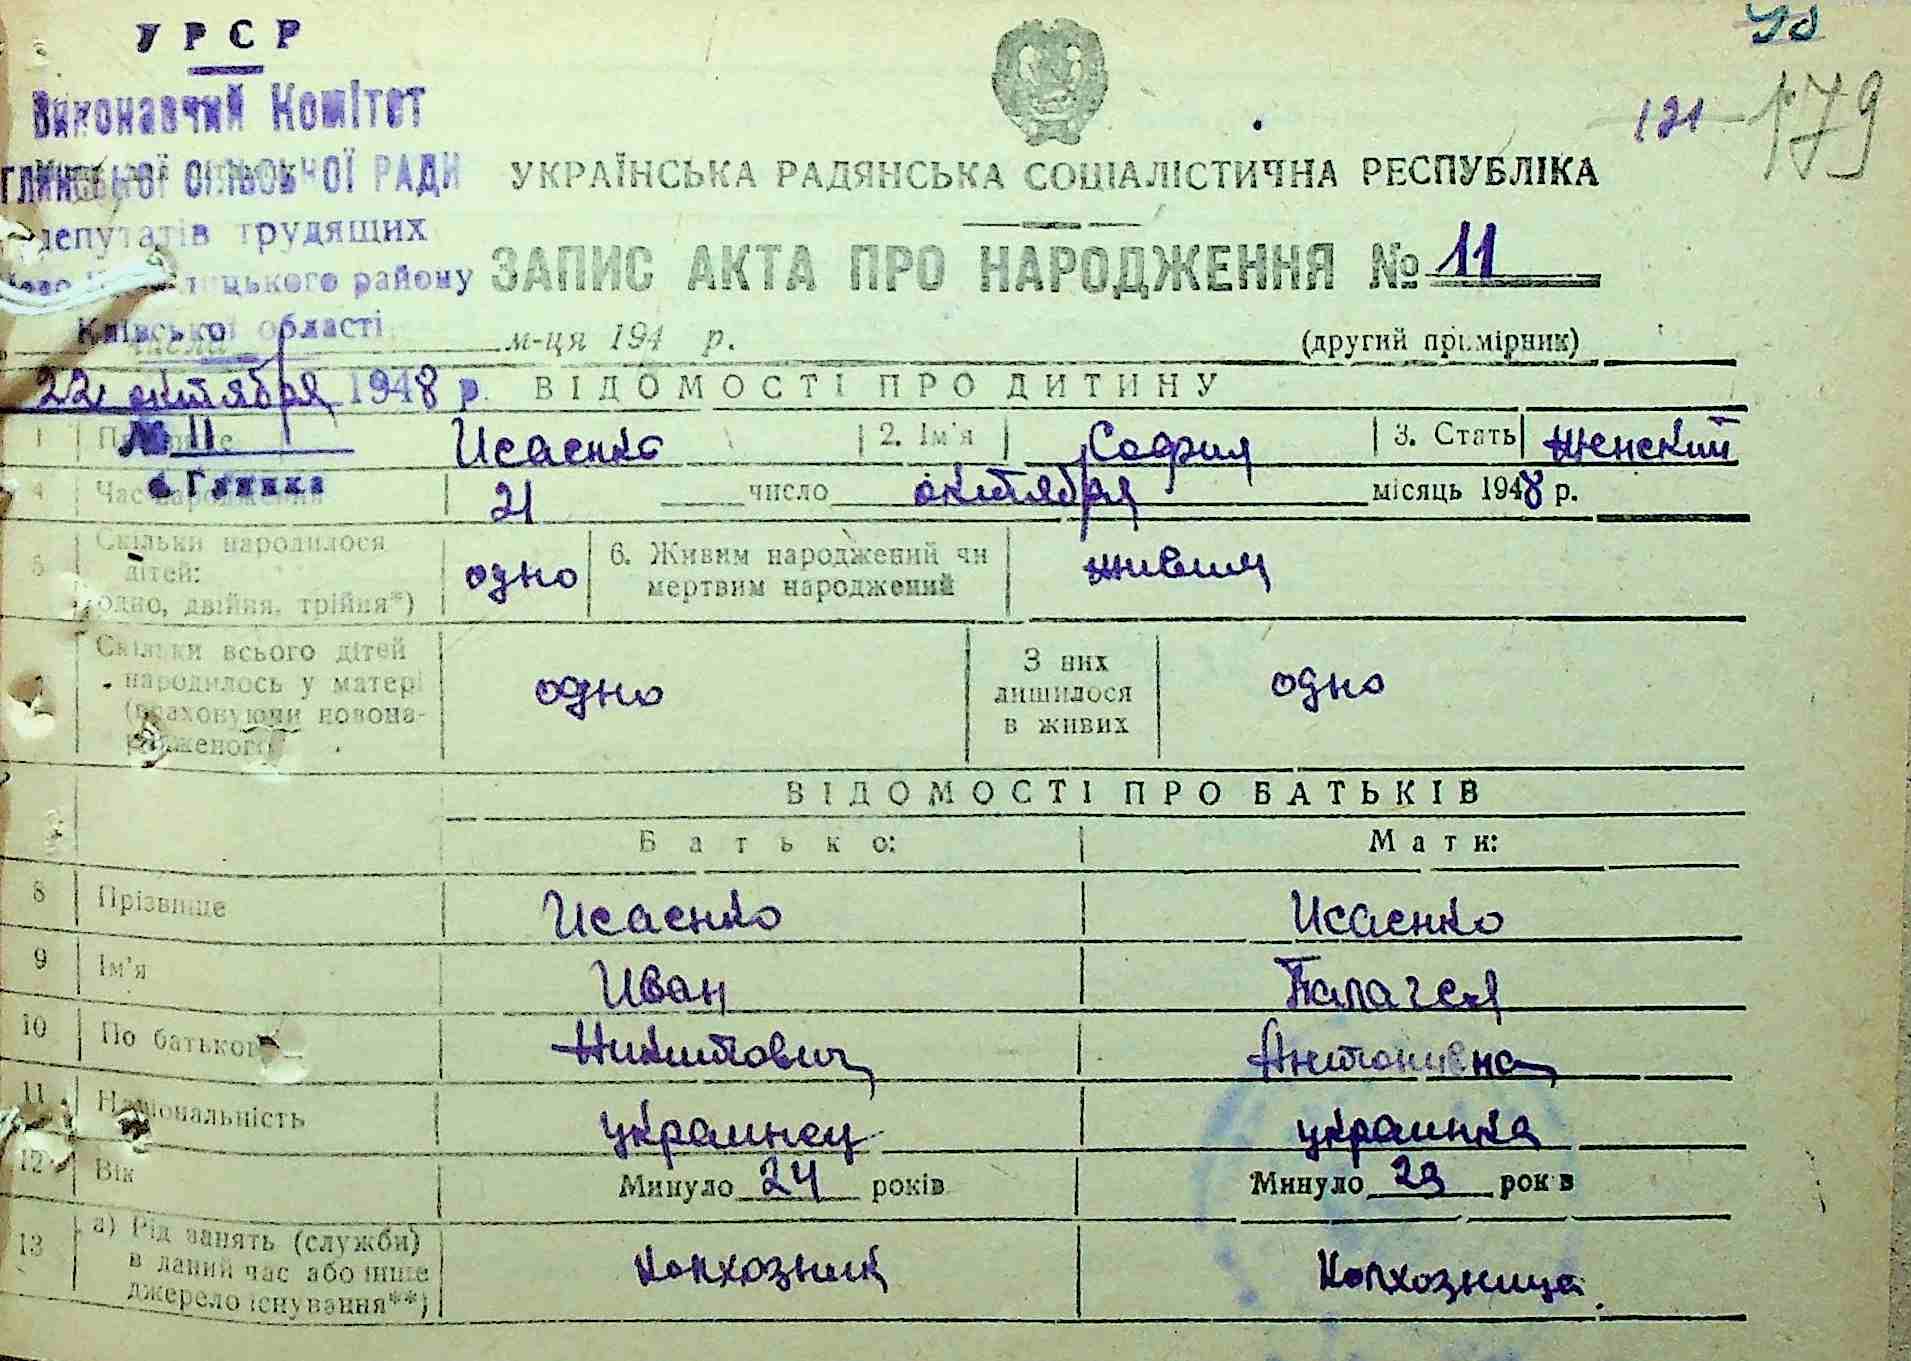 УРСР
Виконавчий Комітет
ГЛИНСЬКОЇ СІЛЬСЬКОЇ РАДИ
депутатів трудящих
району
Київської області
22 октября 1948 р.
№ 11
с. Глинка
121 179
УКРАЇНСЬКА РАДЯНСЬКА СОЦІАЛІСТИЧНА РЕСПУБЛІКА
ЗАПИС АКТА ПРО НАРОДЖЕННЯ № 11
числа м-ця 194 р. (другий примірник)
ВІДОМОСТІ ПРО ДИТИНУ
1 Прізвище Исаенко 2. Ім'я София 3. Стать женский
4 Час народження 21 число октября місяць 1948 р.
5 Скільки народилося
дітей:
одно, двійня, трійня*)
одно
6. Живим народжений чи
мертвим народжений
живим
Скільки всього дітей
народилось у матері
(враховуючи новона-
родженого)
одно
З них
лишилося
в живих
одно
ВІДОМОСТІ ПРО БАТЬКІВ
Батько: Мати:
8 Прізвище Исаенко Исаенко
9 Ім'я Иван Палагея
10 По батькові Никитович Антоновна
11 Національність украинец украинка
12 Вік Минуло 24 років Минуло 23 років
13 а) Рід занять (служби)
в даний час або інше
джерело існування**)
колхозник колхозница